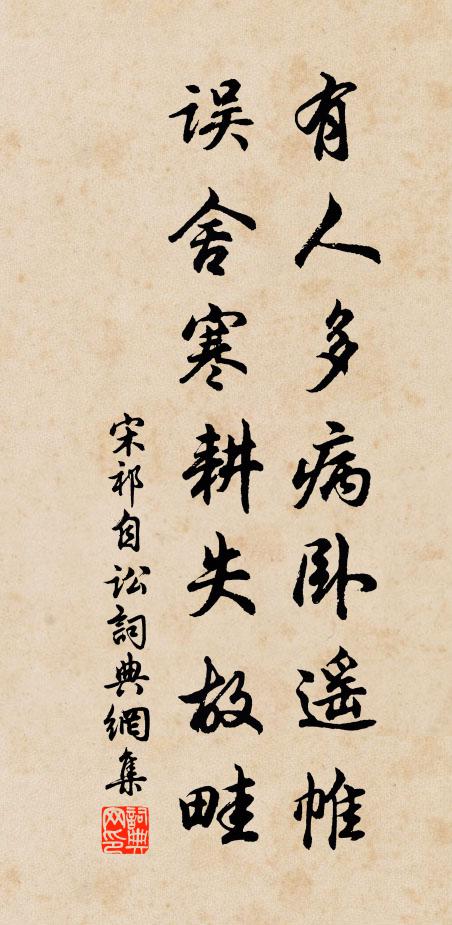 有人多病卧遥帷
误舍寒耕失故畦
宋祁自訟詞典網集
詞典网印